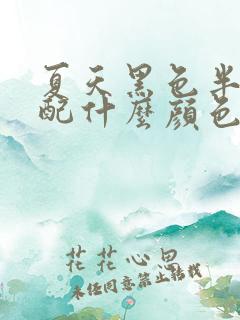 夏天黑色半
配什麼顏色
花花心思
未经同意禁止转载